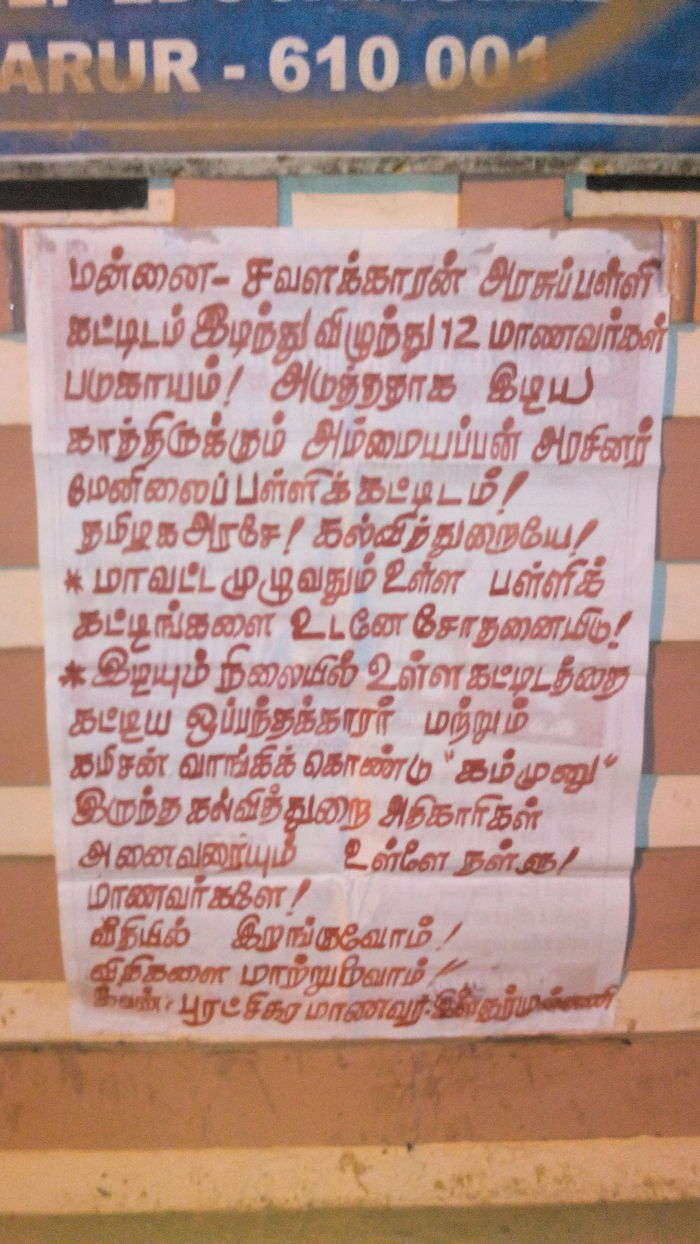 ARUR - 610 001
மன்னை - சவளக்காரன் அரசுப்பள்ளி
கட்டிடம் இடிந்து விழுந்து 12 மாணவர்கள்
படுகாயம்! அடுத்ததாக இடிய
காத்திருக்கும் அம்மையப்பன் அரசினர்
மேனிலைப் பள்ளிக் கட்டிடம்!
தமிழக அரசே! கல்வித்துறையே!
* மாவட்டமுழுவதும் உள்ள பள்ளிக்
கட்டிங்களை உடனே சோதனையிடு!
* இடியும் நிலையில் உள்ள கட்டிடத்தை
கட்டிய ஒப்பந்தக்காரர் மற்றும்
கமிசன் வாங்கிக் கொண்டு "கம்முனு"
இருந்த கல்வித்துறை அதிகாரிகள்
அனைவரையும் உள்ளே தள்ளு!
மாணவர்களே!
வீதியில் இறங்குவோம்!
விதிகளை மாற்றுவோம்!!
புரட்சிகர மாணவர்-இளைஞர்